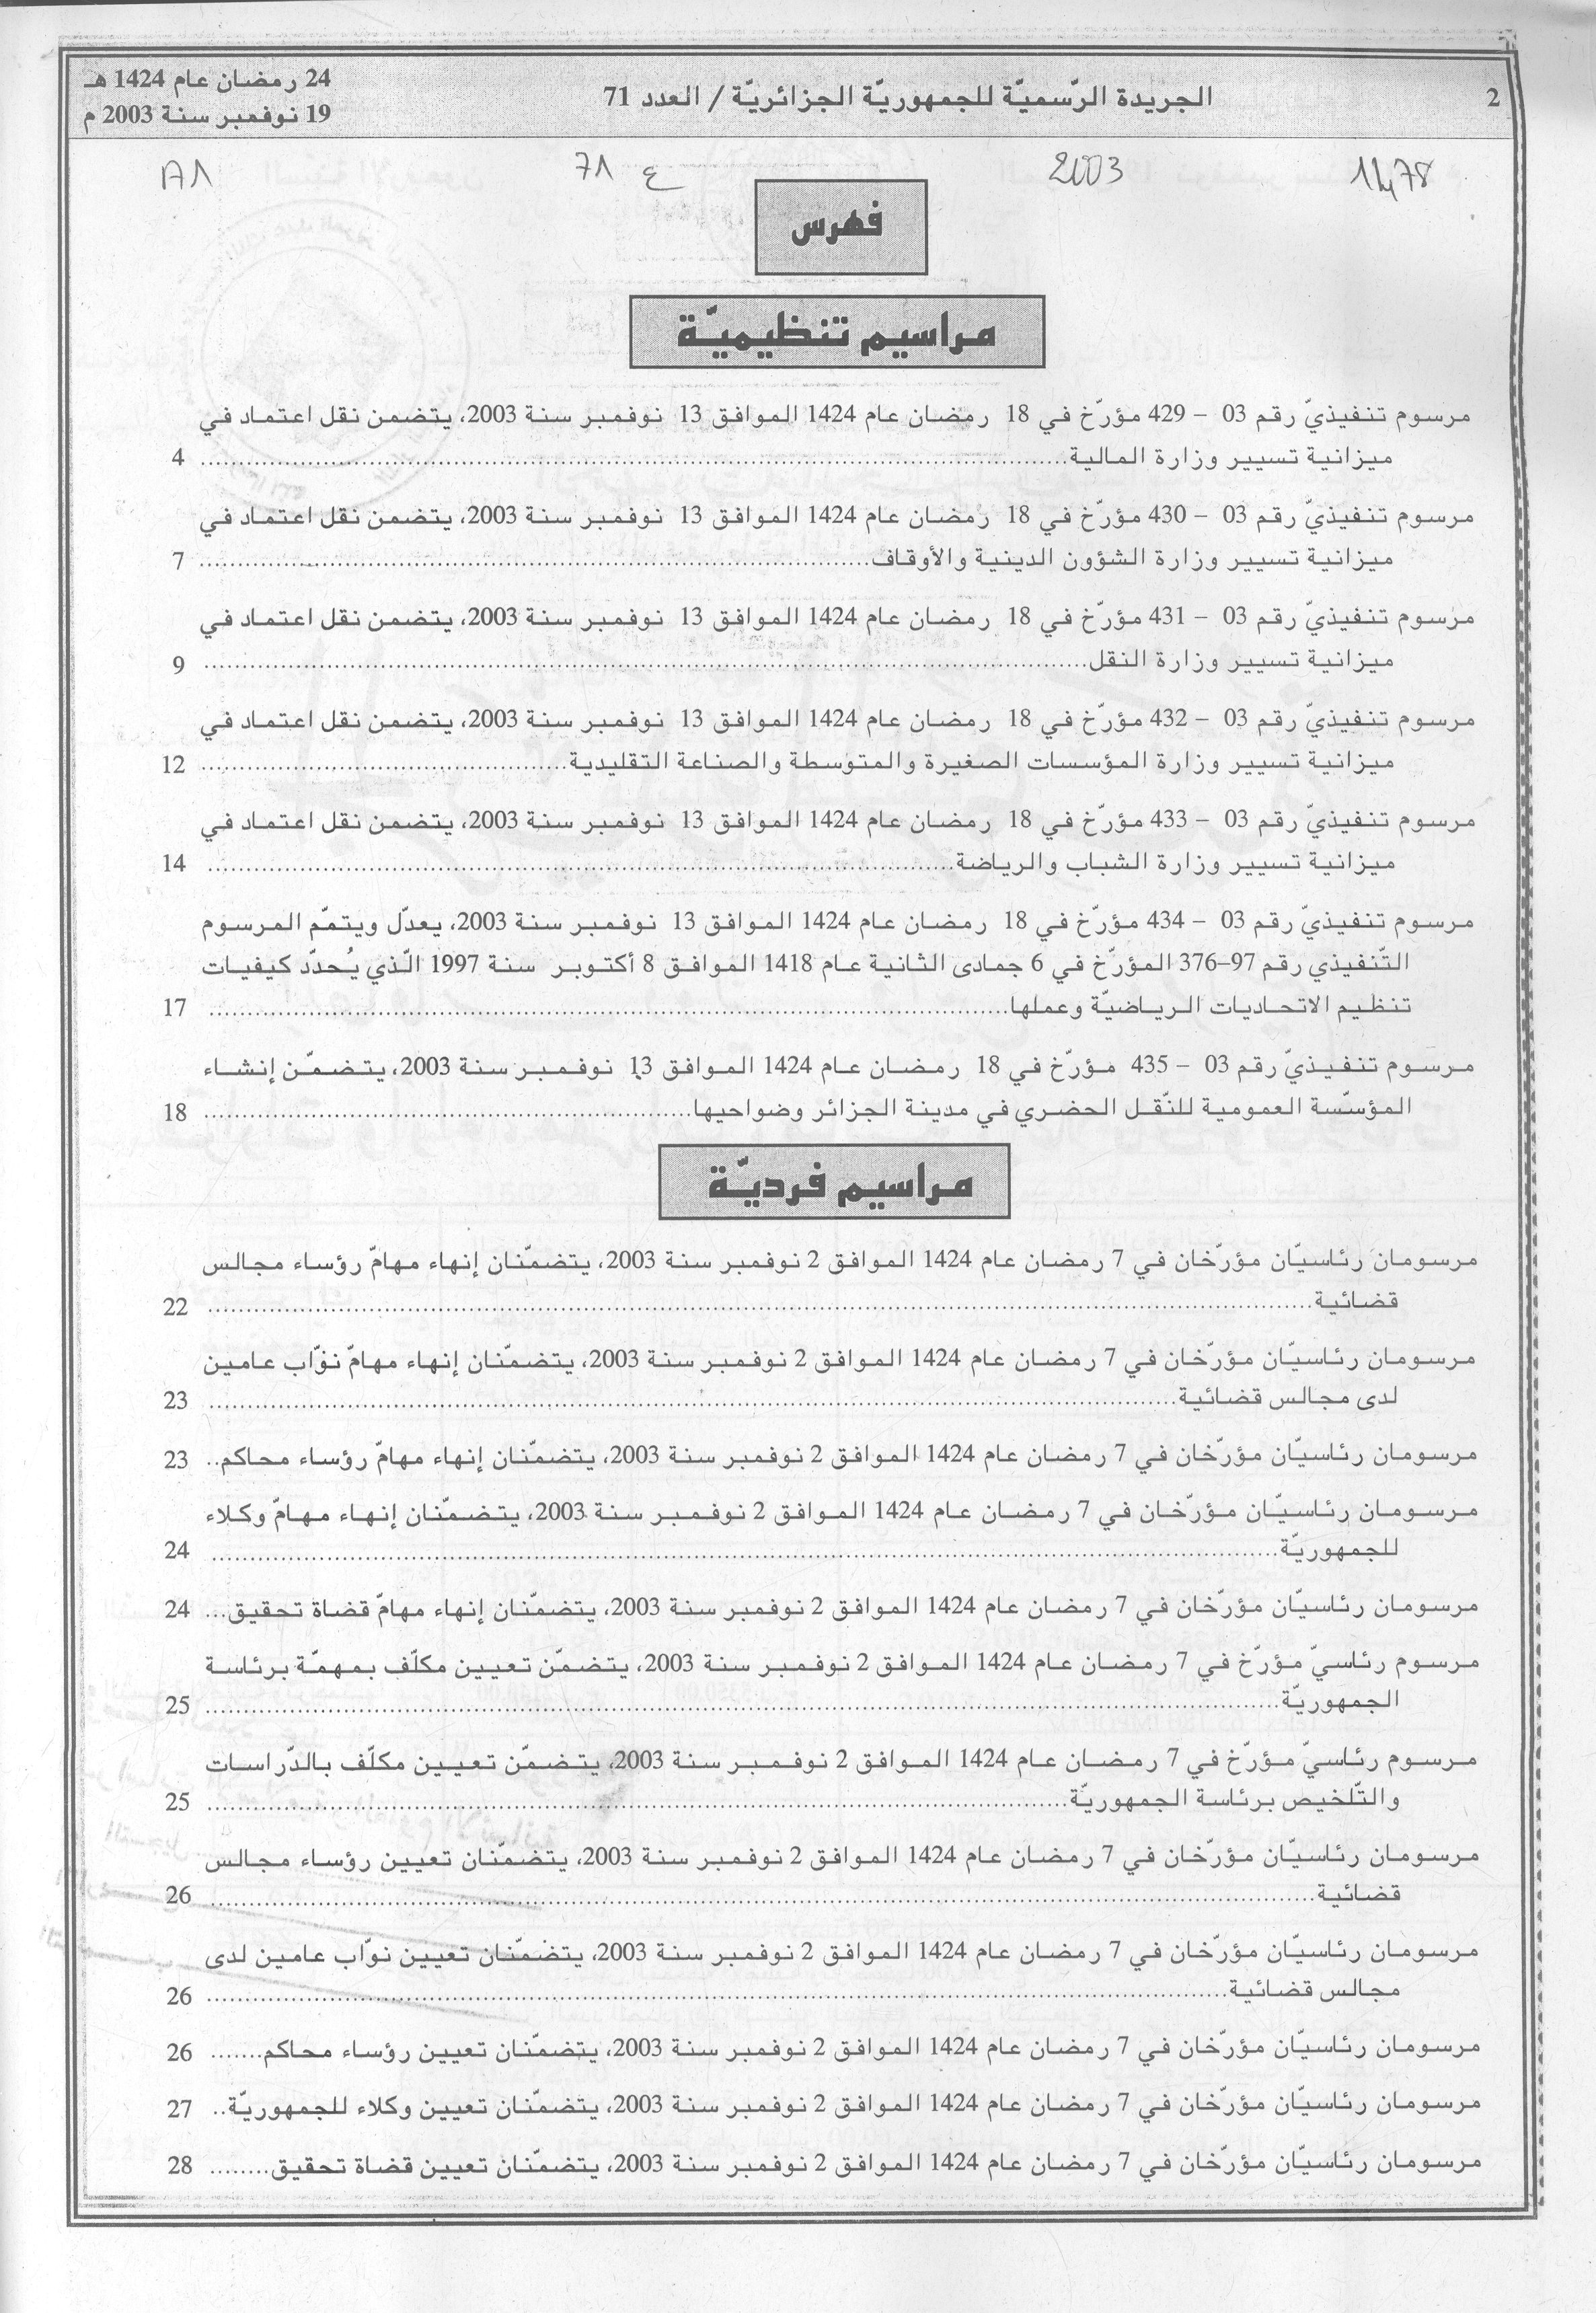 2
الجريدة الرّسميّة للجمهوريّة الجزائريّة / العدد 71
24 رمضان عام 1424 هـ
19 نوفمبر سنة 2003 م
1478 2003 ع 71
فهرس
مراسيم تنظيميّة
مرسوم تنفيذيّ رقم 03 – 429 مؤرّخ في 18 رمضان عام 1424 الموافق 13 نوفمبر سنة 2003، يتضمن نقل اعتماد في
ميزانية تسيير وزارة المالية........................ 4
مرسوم تنفيذيّ رقم 03 – 430 مؤرّخ في 18 رمضان عام 1424 الموافق 13 نوفمبر سنة 2003، يتضمن نقل اعتماد في
ميزانية تسيير وزارة الشؤون الدينية والأوقاف........................ 7
مرسوم تنفيذيّ رقم 03 – 431 مؤرّخ في 18 رمضان عام 1424 الموافق 13 نوفمبر سنة 2003، يتضمن نقل اعتماد في
ميزانية تسيير وزارة النقل........................ 9
مرسوم تنفيذيّ رقم 03 – 432 مؤرّخ في 18 رمضان عام 1424 الموافق 13 نوفمبر سنة 2003، يتضمن نقل اعتماد في
ميزانية تسيير وزارة المؤسسات الصغيرة والمتوسطة والصناعة التقليدية........................ 12
مرسوم تنفيذيّ رقم 03 – 433 مؤرّخ في 18 رمضان عام 1424 الموافق 13 نوفمبر سنة 2003، يتضمن نقل اعتماد في
ميزانية تسيير وزارة الشباب والرياضة........................ 14
مرسوم تنفيذيّ رقم 03 – 434 مؤرّخ في 18 رمضان عام 1424 الموافق 13 نوفمبر سنة 2003، يعدّل ويتمّم المرسوم
التّنفيذي رقم 97–376 المؤرّخ في 6 جمادى الثانية عام 1418 الموافق 8 أكتوبر سنة 1997 الّذي يُحدّد كيفيات
تنظيم الاتحاديات الرياضيّة وعملها........................ 17
مرسوم تنفيذيّ رقم 03 – 435 مؤرّخ في 18 رمضان عام 1424 الموافق 13 نوفمبر سنة 2003، يتضمّن إنشاء
المؤسّسة العمومية للنّقل الحضري في مدينة الجزائر وضواحيها........................ 18
مراسيم فرديّة
مرسومان رئاسيّان مؤرّخان في 7 رمضان عام 1424 الموافق 2 نوفمبر سنة 2003، يتضمّنان إنهاء مهامّ رؤساء مجالس
قضائية........................ 22
مرسومان رئاسيّان مؤرّخان في 7 رمضان عام 1424 الموافق 2 نوفمبر سنة 2003، يتضمّنان إنهاء مهامّ نوّاب عامين
لدى مجالس قضائية........................ 23
مرسومان رئاسيّان مؤرّخان في 7 رمضان عام 1424 الموافق 2 نوفمبر سنة 2003، يتضمّنان إنهاء مهامّ رؤساء محاكم.. 23
مرسومان رئاسيّان مؤرّخان في 7 رمضان عام 1424 الموافق 2 نوفمبر سنة 2003، يتضمّنان إنهاء مهامّ وكلاء
للجمهوريّة........................ 24
مرسومان رئاسيّان مؤرّخان في 7 رمضان عام 1424 الموافق 2 نوفمبر سنة 2003، يتضمّنان إنهاء مهامّ قضاة تحقيق... 24
مرسوم رئاسيّ مؤرّخ في 7 رمضان عام 1424 الموافق 2 نوفمبر سنة 2003، يتضمّن تعيين مكلّف بمهمّة برئاسة
الجمهوريّة........................ 25
مرسوم رئاسيّ مؤرّخ في 7 رمضان عام 1424 الموافق 2 نوفمبر سنة 2003، يتضمّن تعيين مكلّف بالدّراسات
والتّلخيص برئاسة الجمهوريّة........................ 25
مرسومان رئاسيّان مؤرّخان في 7 رمضان عام 1424 الموافق 2 نوفمبر سنة 2003، يتضمّنان تعيين رؤساء مجالس
قضائية........................ 26
مرسومان رئاسيّان مؤرّخان في 7 رمضان عام 1424 الموافق 2 نوفمبر سنة 2003، يتضمّنان تعيين نوّاب عامين لدى
مجالس قضائية........................ 26
مرسومان رئاسيّان مؤرّخان في 7 رمضان عام 1424 الموافق 2 نوفمبر سنة 2003، يتضمّنان تعيين رؤساء محاكم....... 26
مرسومان رئاسيّان مؤرّخان في 7 رمضان عام 1424 الموافق 2 نوفمبر سنة 2003، يتضمّنان تعيين وكلاء للجمهوريّة.. 27
مرسومان رئاسيّان مؤرّخان في 7 رمضان عام 1424 الموافق 2 نوفمبر سنة 2003، يتضمّنان تعيين قضاة تحقيق........ 28